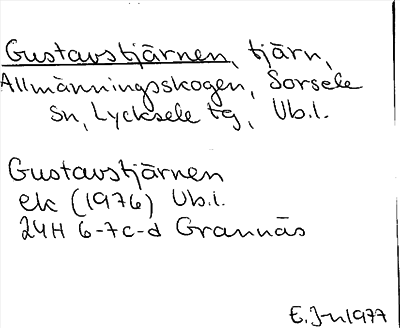 Gustavstjärnen, tjärn,
Allmänningsskogen, Sorsele
Sn, Lycksele tg, Vb.l.
Gustavstjärnen
ek (1976) Vb.l.
24H 6-7c-d Grannäs
E. J-n 1977